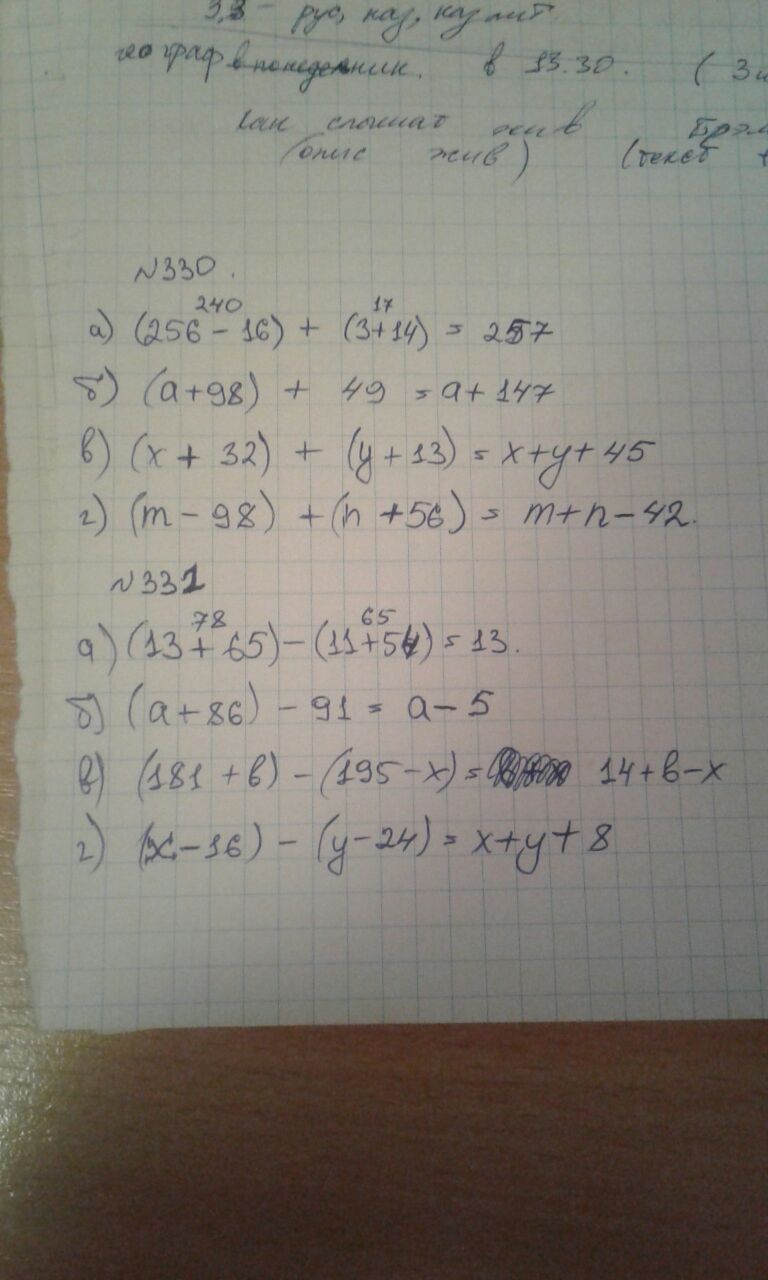 3,3 - рус, каз, каз лит.
географ в понедельник. в 13.30. (
как слышат жив
(опис жив) (текст +
№330.
240 17
а) (256 - 16) + (3+14) = 257
б) (a+98) + 49 = a+147
в) (x + 32) + (y+13) = x+y+45
г) (m - 98) + (n +56) = m+n-42.
№331
78 65
а) (13+65)-(11+54) = 13.
б) (a+86) - 91 = a-5
в) (181 +в) - (195-x) = 14+в-x
г) (x-16) - (y-24) = x+y+8